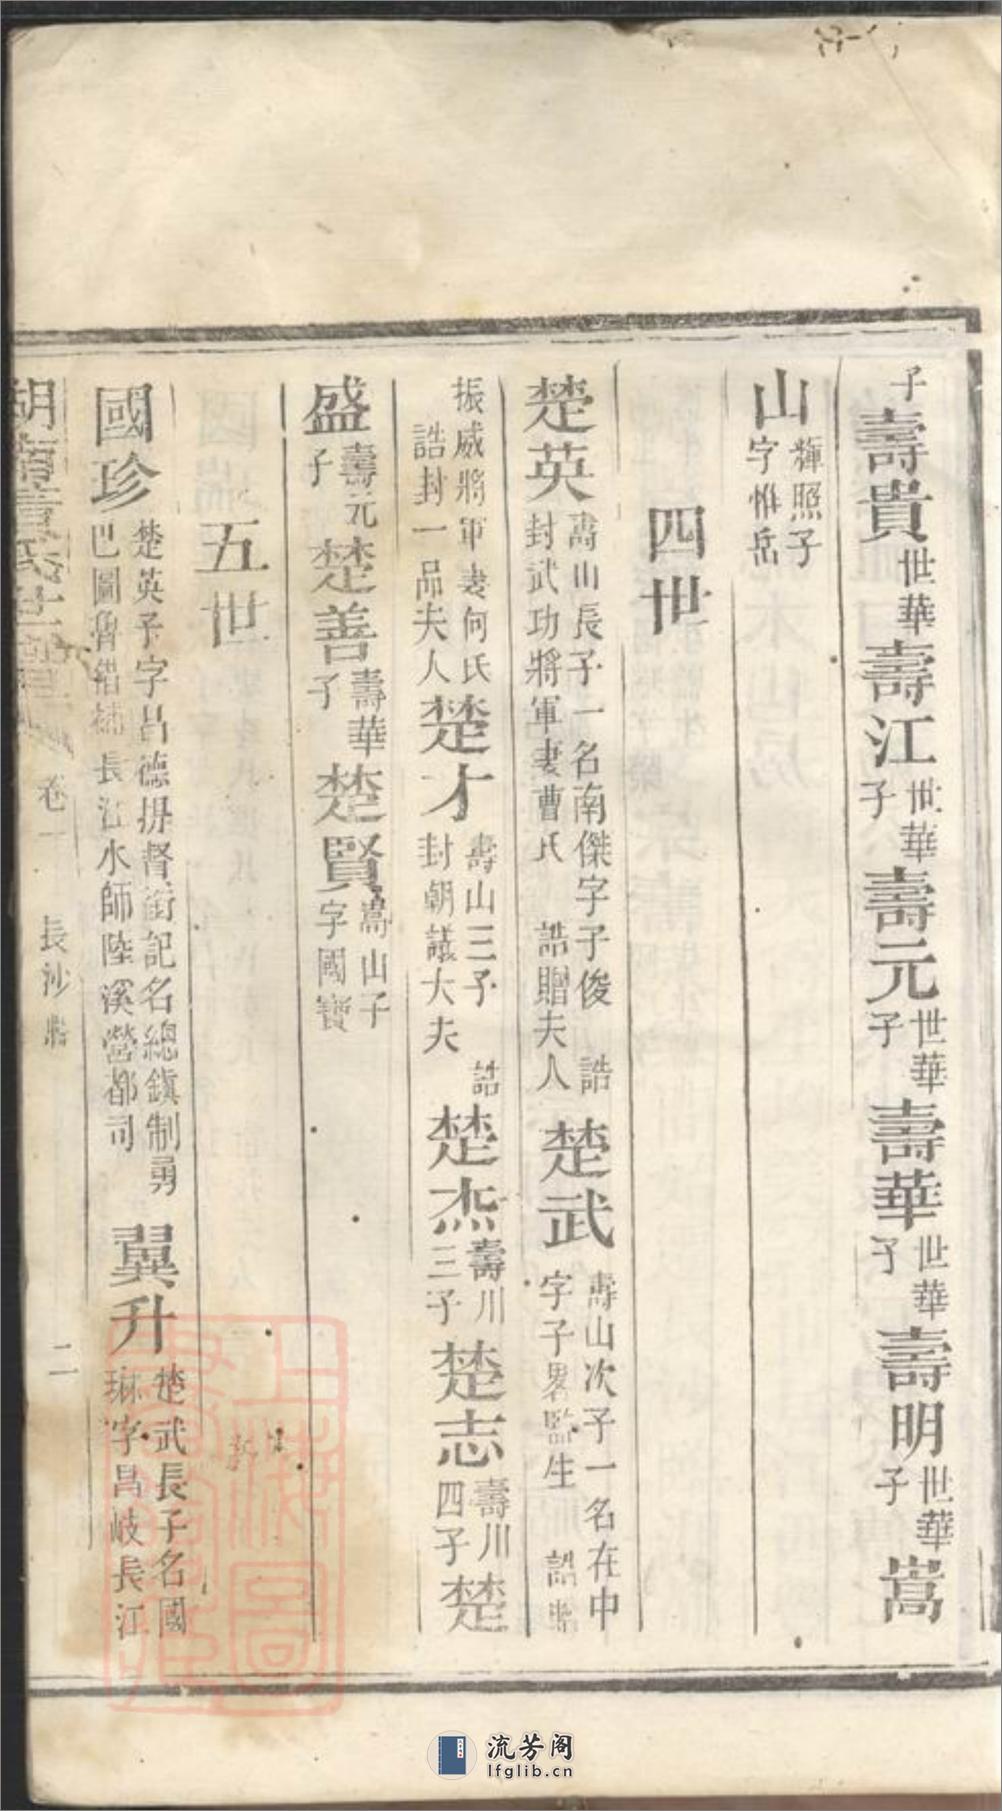 子壽貴世華子壽江世華子壽元世華子壽華世華子壽明世華子嵩
山輝照子字惟岳
四世
楚英壽山長子一名南傑字子俊 誥封武功將軍妻曹氏 誥贈夫人楚武壽山次子一名在中字子畧監生 誥
振威將軍妻何氏誥封一品夫人楚才壽山三子 誥封朝議大夫楚杰壽川三子楚志壽川四子楚
盛壽元子楚善壽華子楚賢嵩山子字國寶
五世
國珍楚英子字昌德掛督銜記名總鎮制勇巴圖魯借補長江水師陸溪營都司翼升楚武長子名國琳字昌岐長江
卷一
長沙
二
流芳阁
lfglib.cn